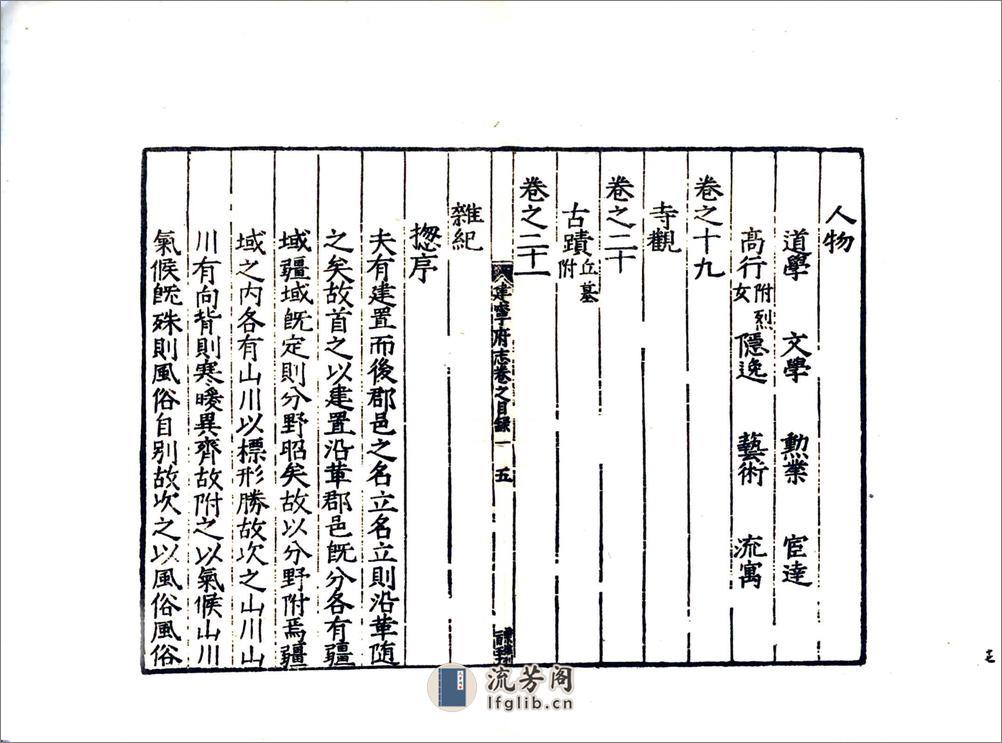 人物
道學 文學 勲業 宦達
高行附烈女 隱逸 藝術 流寓
卷之十九
寺觀
卷之二十
古蹟丘墓附
卷之二十一
建寧府志卷之目録 五
雜紀
揔序
夫有建置而後郡邑之名立名立則沿革随
之矣故首之以建置沿革郡邑既分各有疆
域疆域既定則分野昭矣故以分野附焉疆
域之内各有山川以標形勝故次之山川山
川有向背則寒暖異齊故附之以氣候山川
氣候既殊則風俗自别故次之以風俗風俗
流芳阁
lfglib.cn